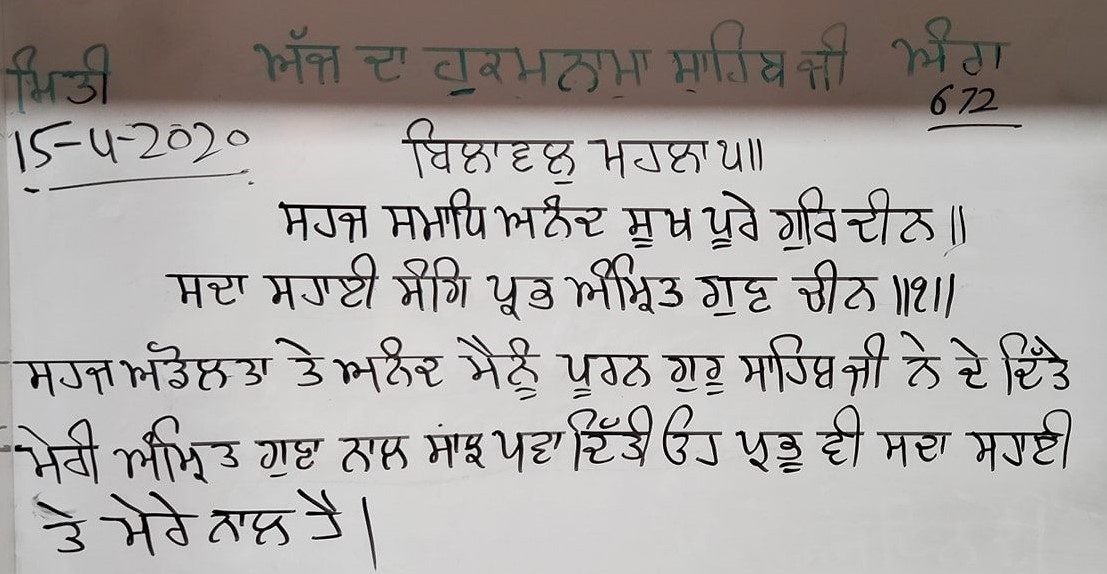 ਮਿਤੀ ਅੱਜ ਦਾ ਹੁਕਮਨਾਮਾ ਸਾਹਿਬ ਜੀ ਅੰਗ
672
15-4-2020
ਬਿਲਾਵਲੁ ਮਹਲਾ ੫॥
ਸਹਜ ਸਮਾਧਿ ਅਨੰਦ ਸੂਖ ਪੂਰੇ ਗੁਰਿ ਦੀਨ॥
ਸਦਾ ਸਹਾਈ ਸੰਗਿ ਪ੍ਰਭ ਅੰਮ੍ਰਿਤ ਗੁਣ ਚੀਨ॥੧॥
ਸਹਜ ਅਡੋਲਤਾ ਤੇ ਅਨੰਦ ਮੈਨੂੰ ਪੂਰਨ ਗੁਰੂ ਸਾਹਿਬ ਜੀ ਨੇ ਦੇ ਦਿੱਤੇ
ਮੇਰੀ ਅੰਮ੍ਰਿਤ ਗੁਣਾ ਨਾਲ ਸਾਂਝ ਪਵਾ ਦਿੱਤੀ ਓਹ ਪ੍ਰਭੂ ਵੀ ਸਦਾ ਸਹਾਈ
ਤੇ ਮੇਰੇ ਨਾਲ ਹੈ|